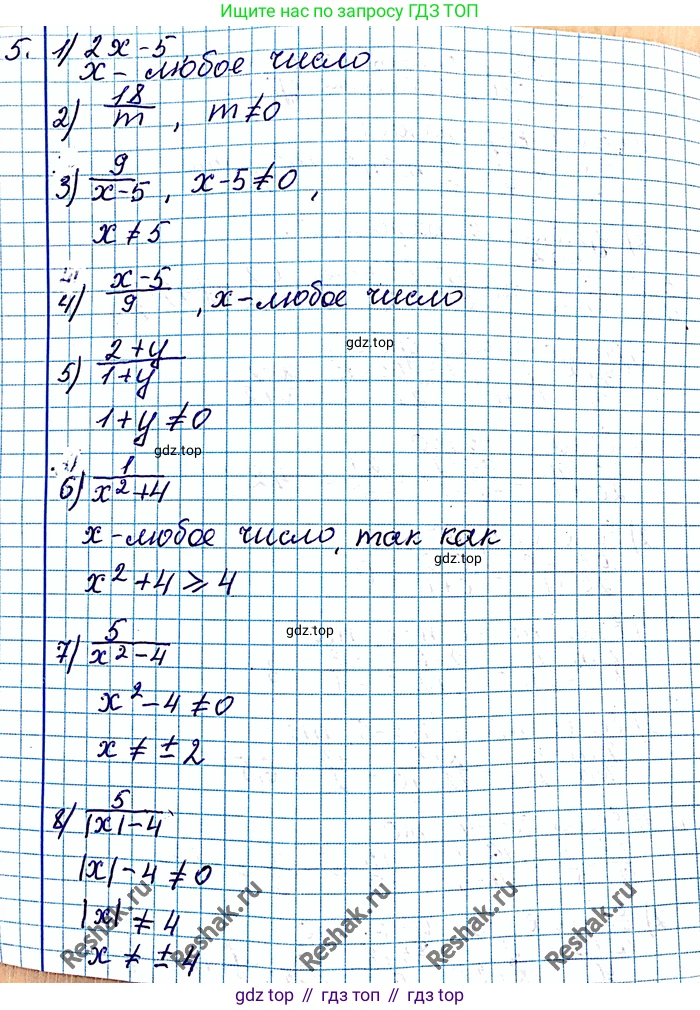 Ищите нас по запросу ГДЗ ТОП
5. 1) 2x - 5
x - любое число
2) 18/m , m ≠ 0
3) 9/(x-5) , x - 5 ≠ 0 ,
x ≠ 5
4) (x-5)/9 , x - любое число
gdz.top
5) (2+y)/(1+y)
1 + y ≠ 0
gdz.top
6) 1/(x²+4)
x - любое число, так как
gdz.top
x² + 4 ⩾ 4
gdz.top
7) 5/(x²-4)
x² - 4 ≠ 0
x ≠ ± 2
8) 5/(|x|-4)
|x| - 4 ≠ 0
|x| ≠ 4
x ≠ ± 4
Reshak.ru Reshak.ru Reshak.ru Reshak.ru Reshak.ru
gdz top // гдз топ // gdz.top